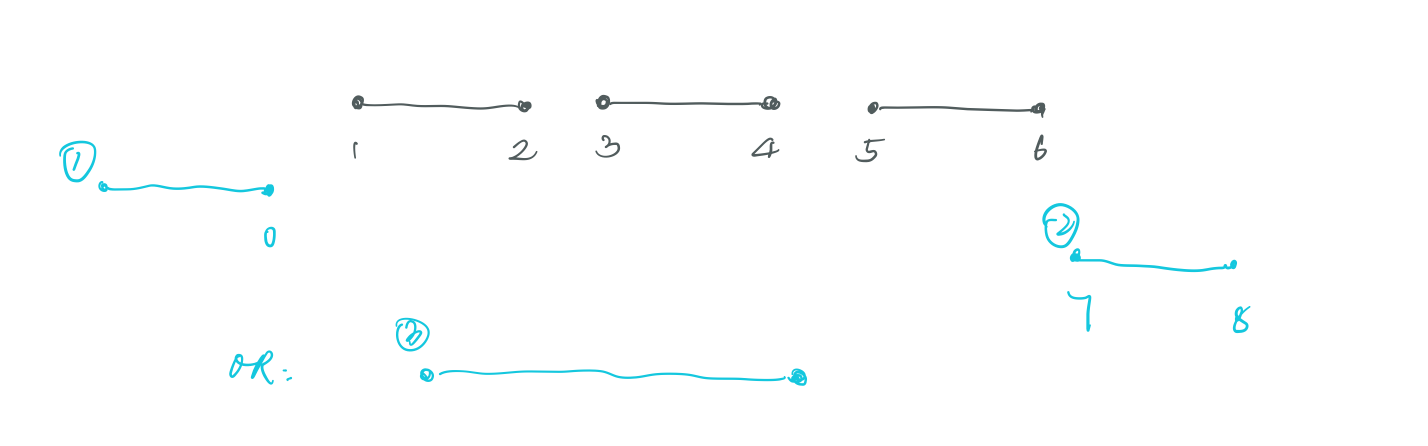 1 2 3 4 5 6
①
0
②
7 8
③
OR: